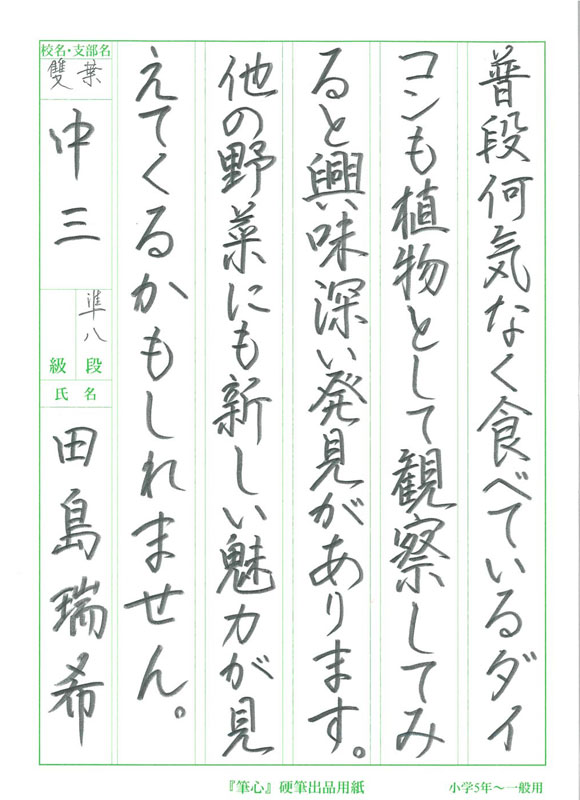 普段何気なく食べているダイ
コンも植物として観察してみ
ると興味深い発見があります。
他の野菜にも新しい魅力が見
えてくるかもしれません。
校名・支部名
雙葉
中三
準八
段
級
氏名
田島瑞希
『筆心』硬筆出品用紙
小学5年～一般用